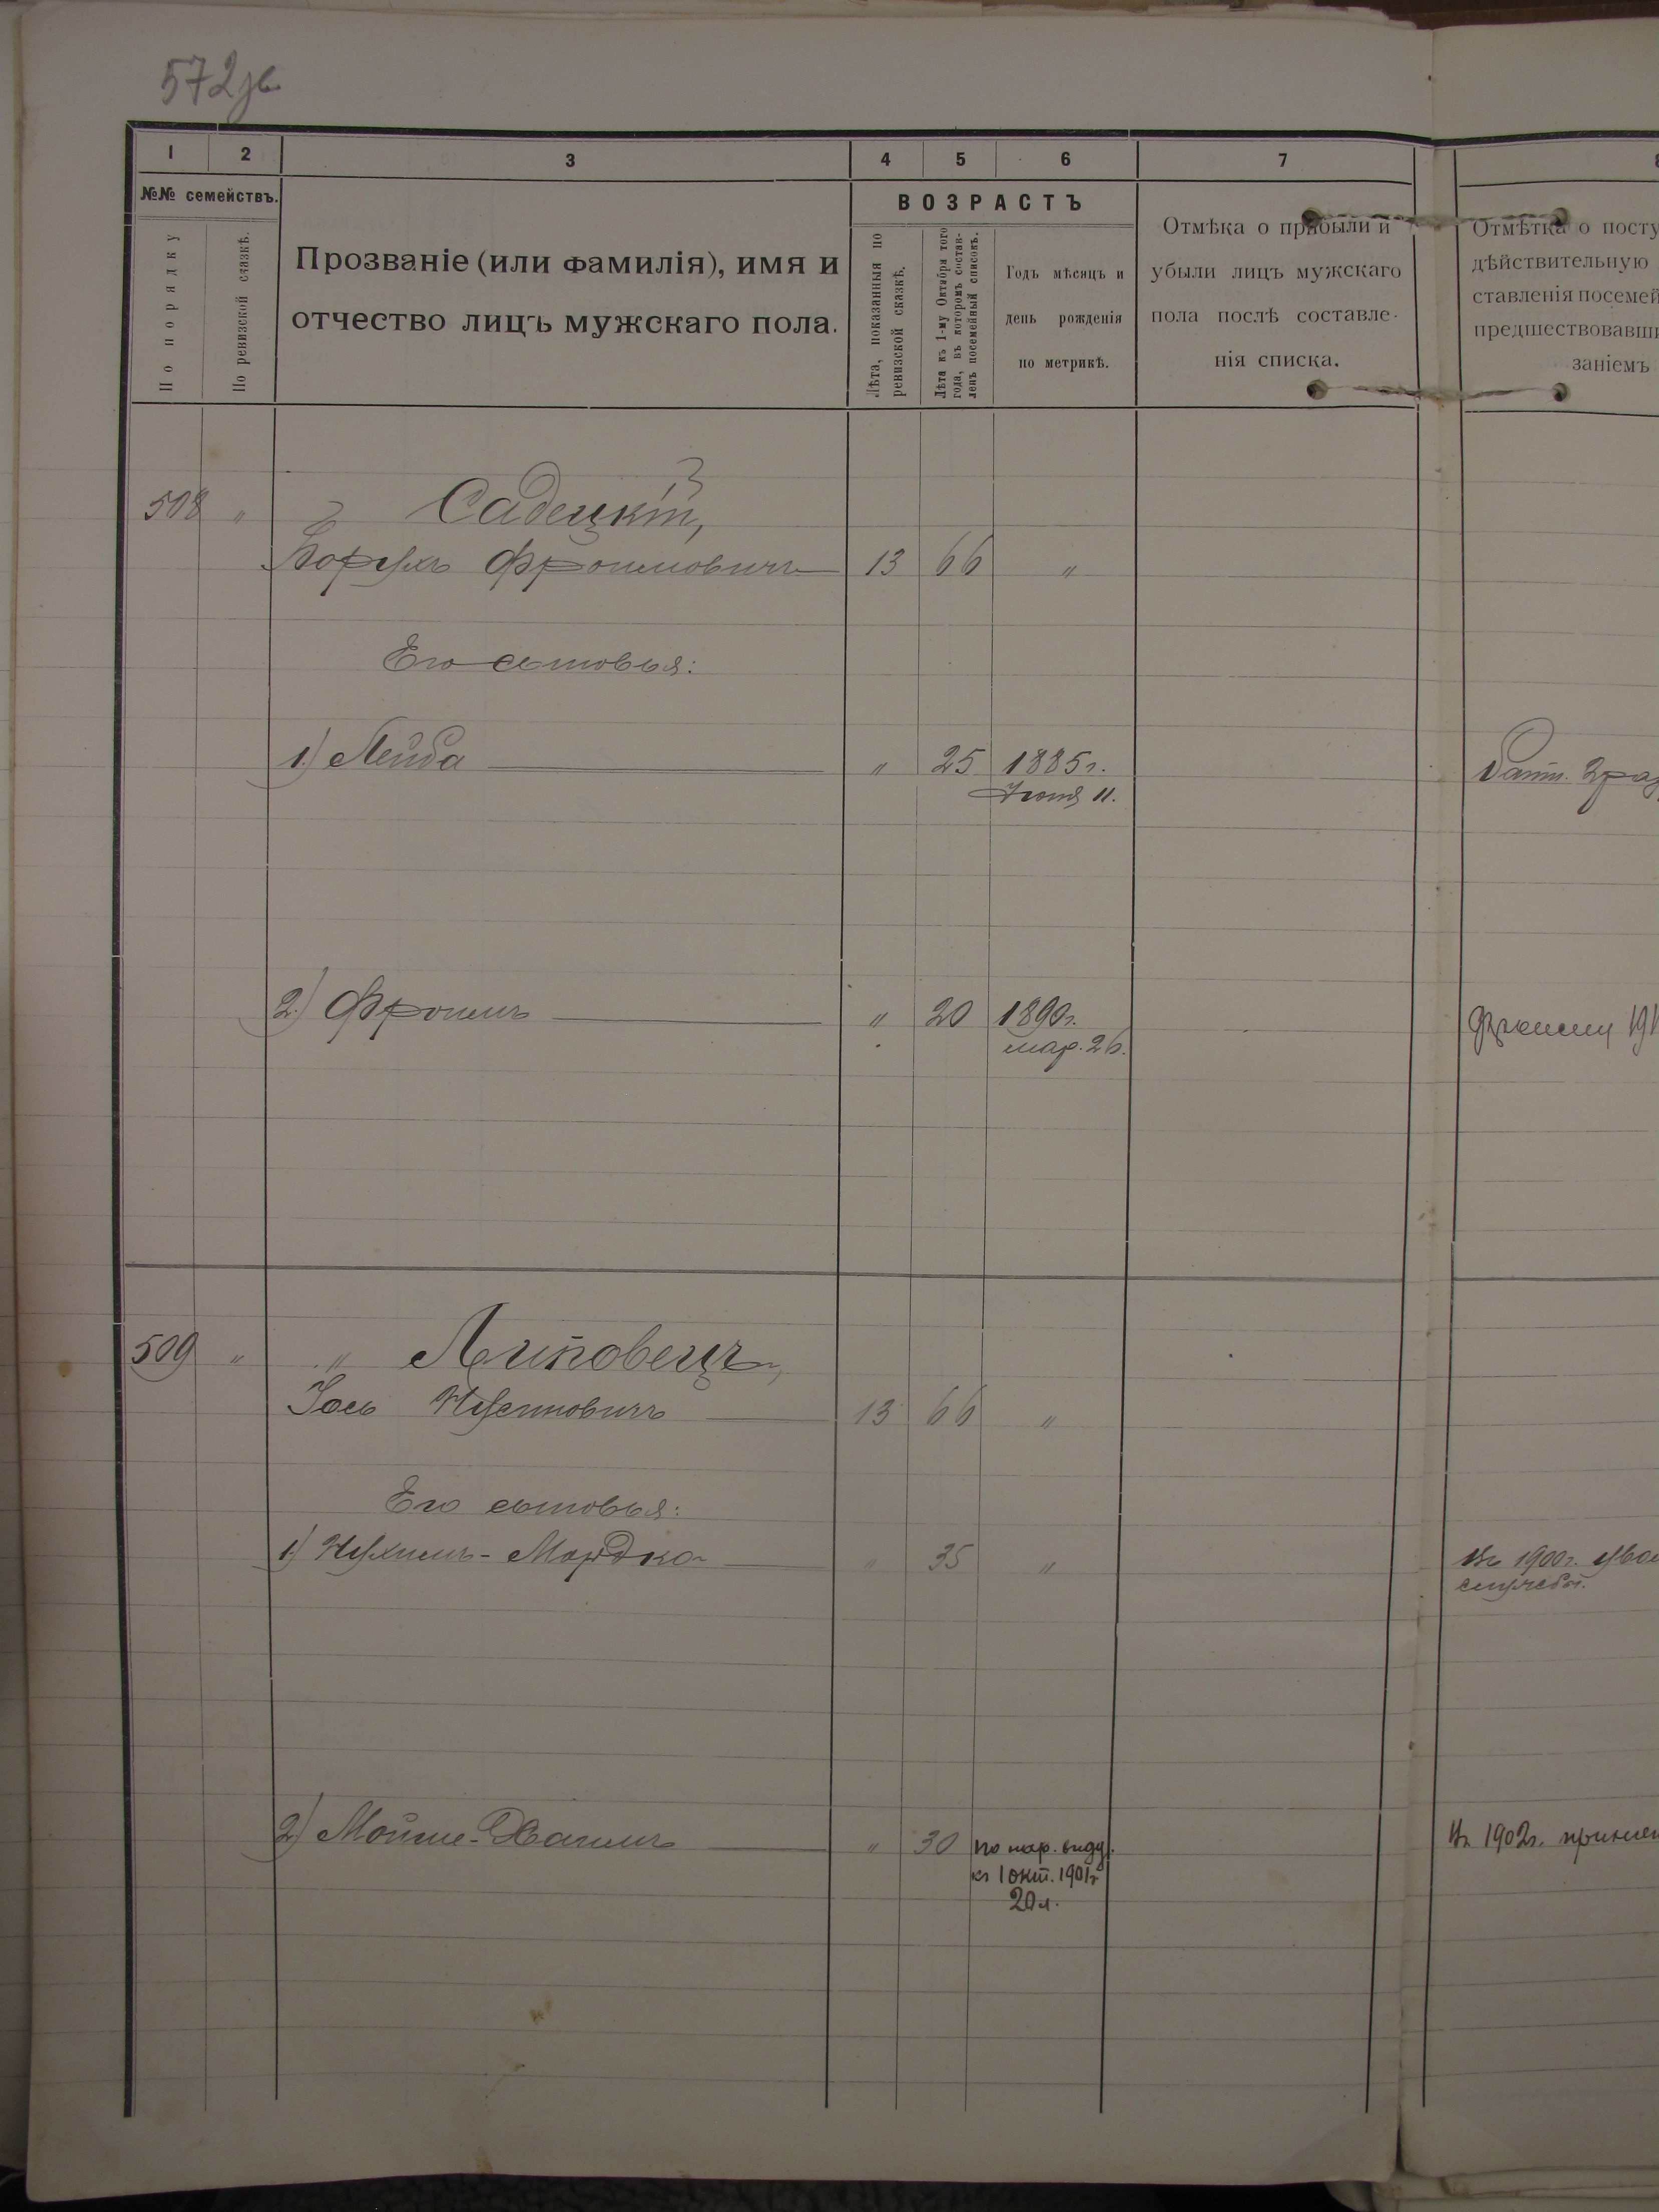 572 зв.
1 2 3 4 5 6 7
№№ семействъ.
По порядку
По ревизской сказкѣ.
Прозваніе (или фамилія), имя и
отчество лицъ мужскаго пола.
ВОЗРАСТЪ
Лѣта, показанныя по
ревизской сказкѣ.
Лѣта къ 1-му Октября того
года, въ которомъ состав-
ленъ посемейный списокъ.
Годъ мѣсяцъ и
день рожденія
по метрикѣ.
Отмѣка о прибыли и
убыли лицъ мужскаго
пола послѣ составле-
нія списка.
Отмѣтка о посту
дѣйствительную
ставленія посемей
предшествовавши
заніемъ
508 " Садецкій,
Борухъ Фроимовичъ 13 66 "
Его сыновья:
1) Лейба " 25 1885 г.
Іюня 11.
2) Фроимъ " 20 1890 г.
мар. 26.
509 " " Липовецъ,
Іось Нусиновичъ 13 66 "
Его сыновья:
1) Нухимъ-Мордко " 35 "
Въ 1900 г. увол
службы.
2) Мойше-Хаимъ " 30 по нар. виду
къ 1 окт. 1901 г
20 л.
Въ 1902 г.